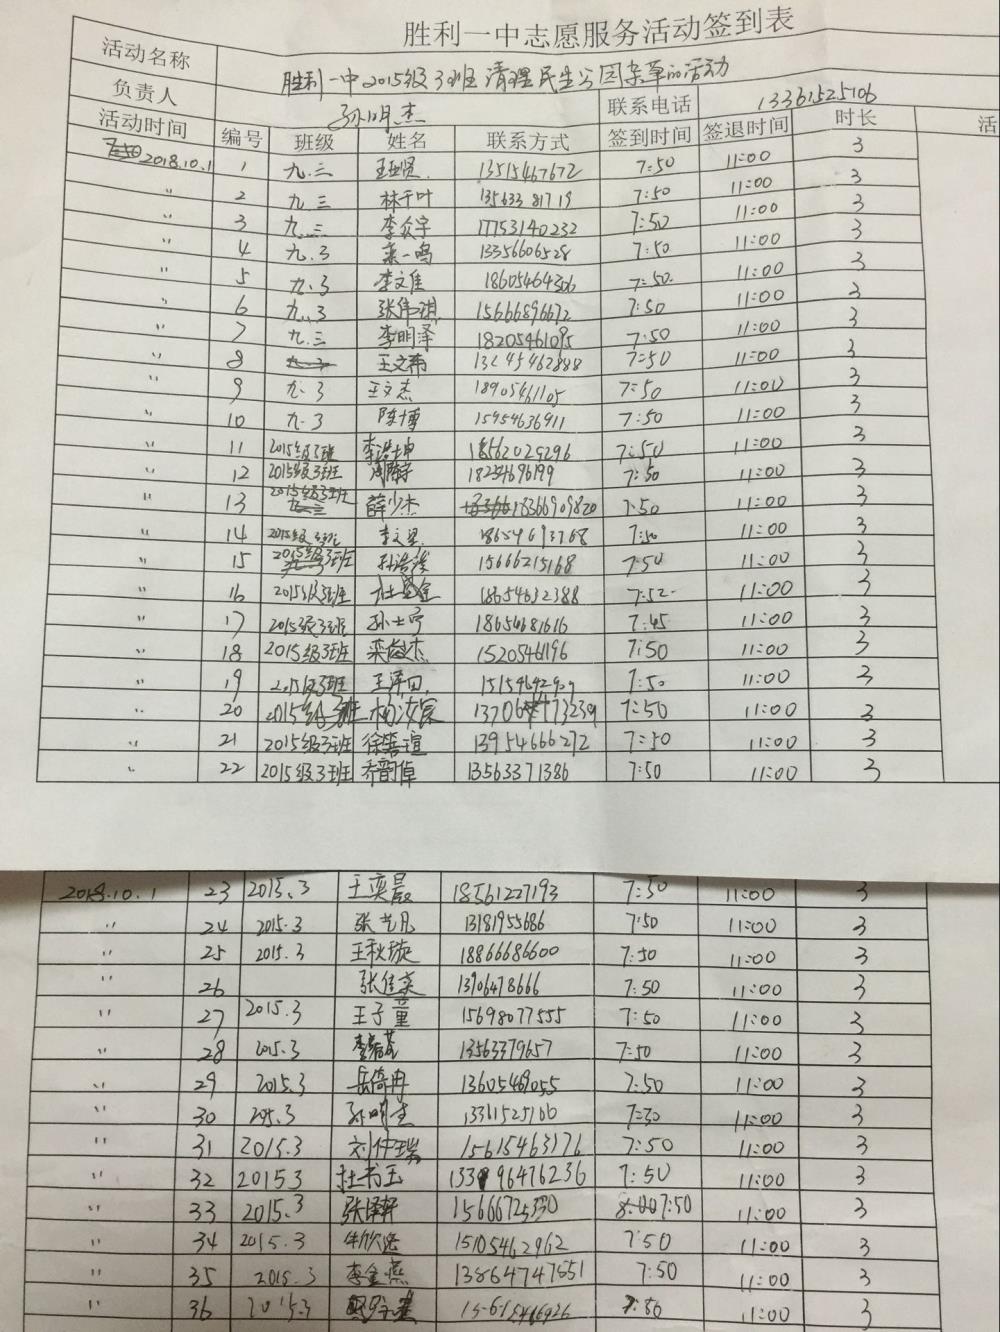 胜利一中志愿服务活动签到表
活动名称 胜利一中2015级3班清理民生公园杂草的活动
负责人 孙明杰 联系电话 13361525106
活动时间 编号 班级 姓名 联系方式 签到时间 签退时间 时长 活
2018.10.1 1 九.三 13515467672 7:50 11:00 3
" 2 九.三 林千叶 13563381719 7:50 11:00 3
" 3 九.三 李众宇 17753140232 7:50 11:00 3
" 4 九.3 一鸣 13356606528 7:50 11:00 3
" 5 九.3 李文佳 18605464306 7:50 11:00 3
" 6 九.3 张伟琪 15666896672 7:50 11:00 3
" 7 九.三 李明泽 18205461095 7:50 11:00 3
" 8 王文 7:50 11:00 3
" 9 九.3 王文杰 18905461105 7:50 11:00 3
" 10 九.3 陈博 15954636911 7:50 11:00 3
" 11 2015级3班 李浩坤 18562029296 7:50 11:00 3
" 12 2015级3班 7:50 11:00 3
" 13 2015级3班 薛少杰 18366909820 7:50 11:00 3
" 14 2015级3班 7:50 11:00 3
" 15 2015级3班 孙浩浚 15666215168 7:50 11:00 3
" 16 2015级3班 18654632388 7:52 11:00 3
" 17 2015级3班 孙士宁 18654681616 7:45 11:00 3
" 18 2015级3班 栾尚杰 15205461196 7:50 11:00 3
" 19 2015级3班 王泽田 7:50 11:00 3
" 20 2015级3班 7:50 11:00 3
" 21 2015级3班 徐善瑄 13954666272 7:50 11:00 3
" 22 2015级3班 乔韵倬 13563371386 7:50 11:00 3
2018.10.1 23 2015.3 王奕晨 18561227193 7:50 11:00 3
" 24 2015.3 张艺凡 13181955686 7:50 11:00 3
" 25 2015.3 王秋璇 18866686600 7:50 11:00 3
" 26 张佳 13906478666 7:50 11:00 3
" 27 2015.3 王子童 15698077555 7:50 11:00 3
" 28 2015.3 13563379657 7:50 11:00 3
" 29 2015.3 岳倚冉 13605469055 7:50 11:00 3
" 30 205.3 孙明杰 7:30 11:00 3
" 31 2015.3 刘仲瑞 15615463176 7:50 11:00 3
" 32 20153 杜书玉 7:50 11:00 3
" 33 2015.3 张泽轩 15666725330 8:00 7:50 11:00 3
" 34 2015.3 15105462962 7:50 11:00 3
" 35 2015.3 李金燕 13864747551 7:50 11:00 3
" 36 2015.3 7:50 11:00 3